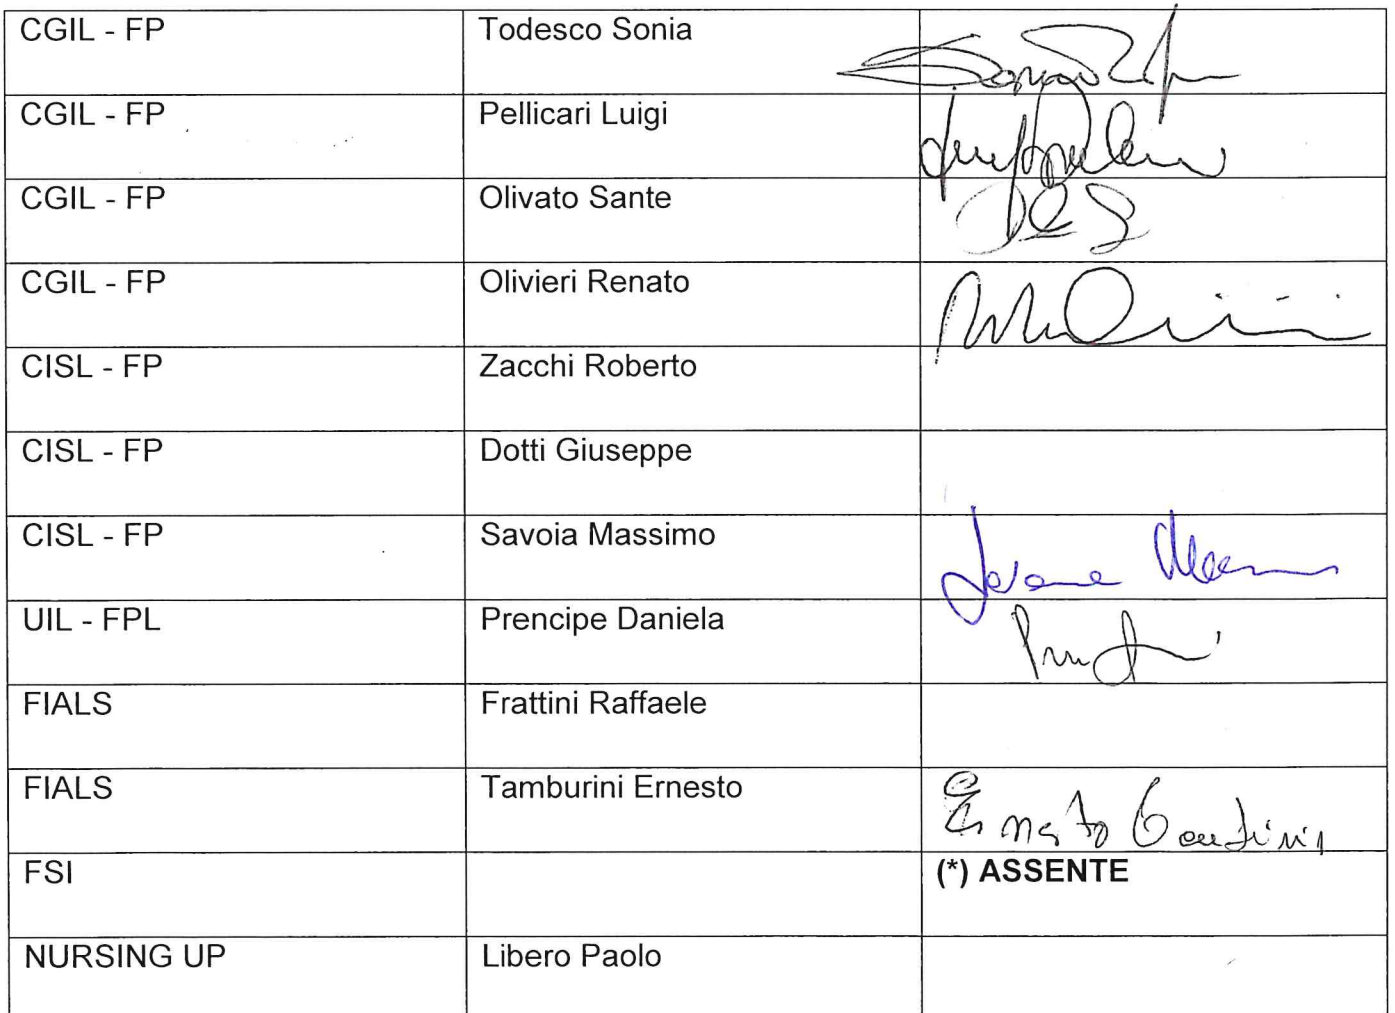 CGIL - FP Todesco Sonia
CGIL - FP Pellicari Luigi
CGIL - FP Olivato Sante
CGIL - FP Olivieri Renato
CISL - FP Zacchi Roberto
CISL - FP Dotti Giuseppe
CISL - FP Savoia Massimo
UIL - FPL Prencipe Daniela
FIALS Frattini Raffaele
FIALS Tamburini Ernesto
FSI (*) ASSENTE
NURSING UP Libero Paolo